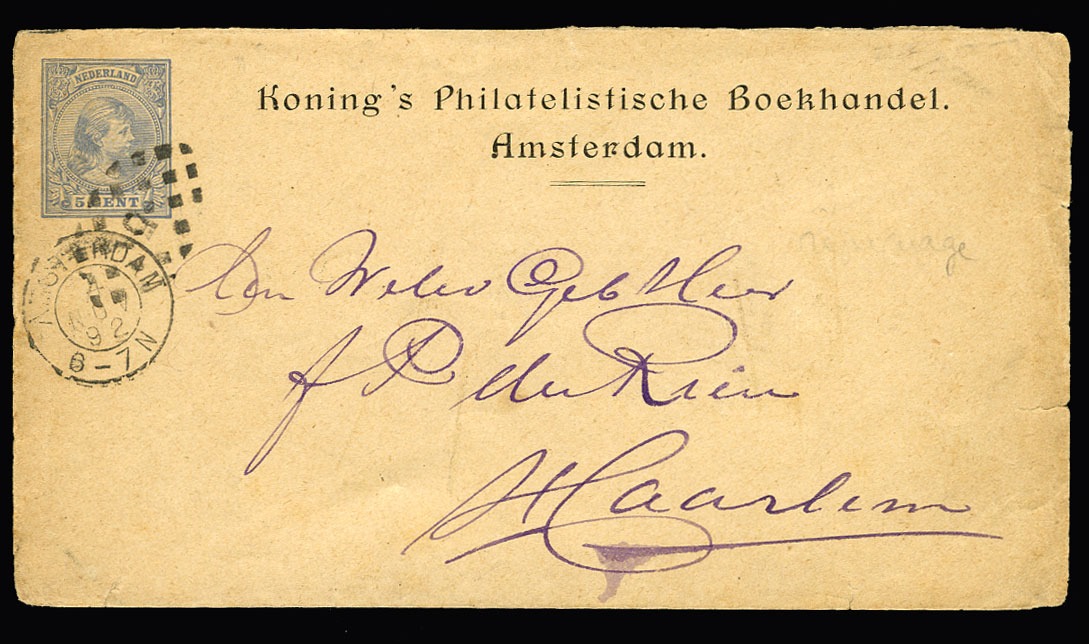 NEDERLAND
5 CENT
Koning's Philatelistische Boekhandel.
Amsterdam.
AMSTERDAM
92
6-7N
Den Weled Geb Heer
P de
Haarlem